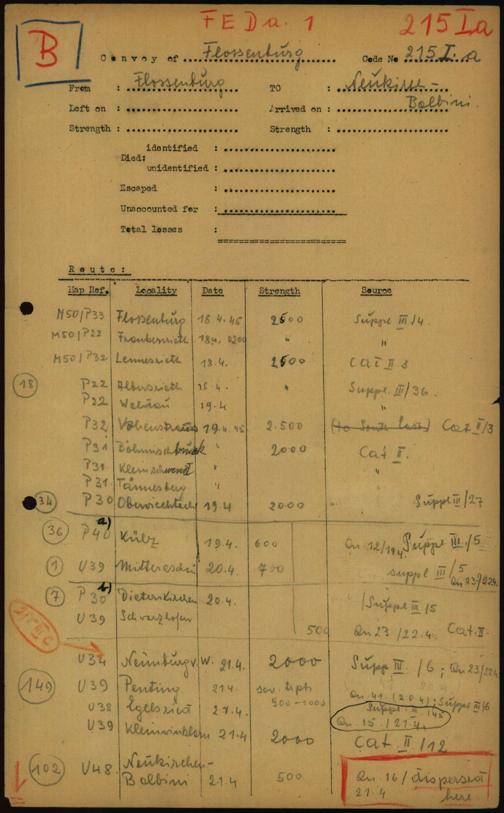 FEDa. 1
215 Ia
B
Convoy of Flossenburg Code No 215.I.a
From : Flossenburg TO : Neukirch-
Balbini
Left on : Arrived on :
Strength : Strength :
Died:
identified :
unidentified :
Escaped :
Unaccounted for :
Total losses :
Route:
Map Ref. Locality Date Strength Source
M50/P33 Flossenburg 18.4.45 2500 Suppl III/4
M50/P22 "
M50/P32 Lennesrieth 18.4. 2500 Cat II 3
18 P22 Albersrieth 18.4. " Suppl. III/36.
P22 19.4 "
P32 Vohenstrauss 19.4.45 2.500 Cat II/3
P31 Böhmischbruck " 2000 Cat II.
P31 Kleinschwand " "
P31 Tännesberg "
34 P30 19.4 2000 Suppl III/27
a)
36 P40 Kulz 19.4. 600 Qn 12/19.4 Suppl III./5
1 U39 20.4. 700 suppl III/5
Qn 23/22.4.
b)
7 P30 Dieterskirchen 20.4. Suppl III/5
U39 500 Qn 23/22.4. Cat. II
215 III C
U34 Neunburg v. W. 21.4. 2000 Supp III/6; Qn 23/22.4
149 U39 Penting 21.4 900-1000
U38 21.4.
Qn. 15./21.4.
U39 Kleinwinklarn 21.4 2000 Cat II/12
102 U48 Neukirchen-
Balbini 21.4 500 Qn. 16/ dispersed
21.4 here